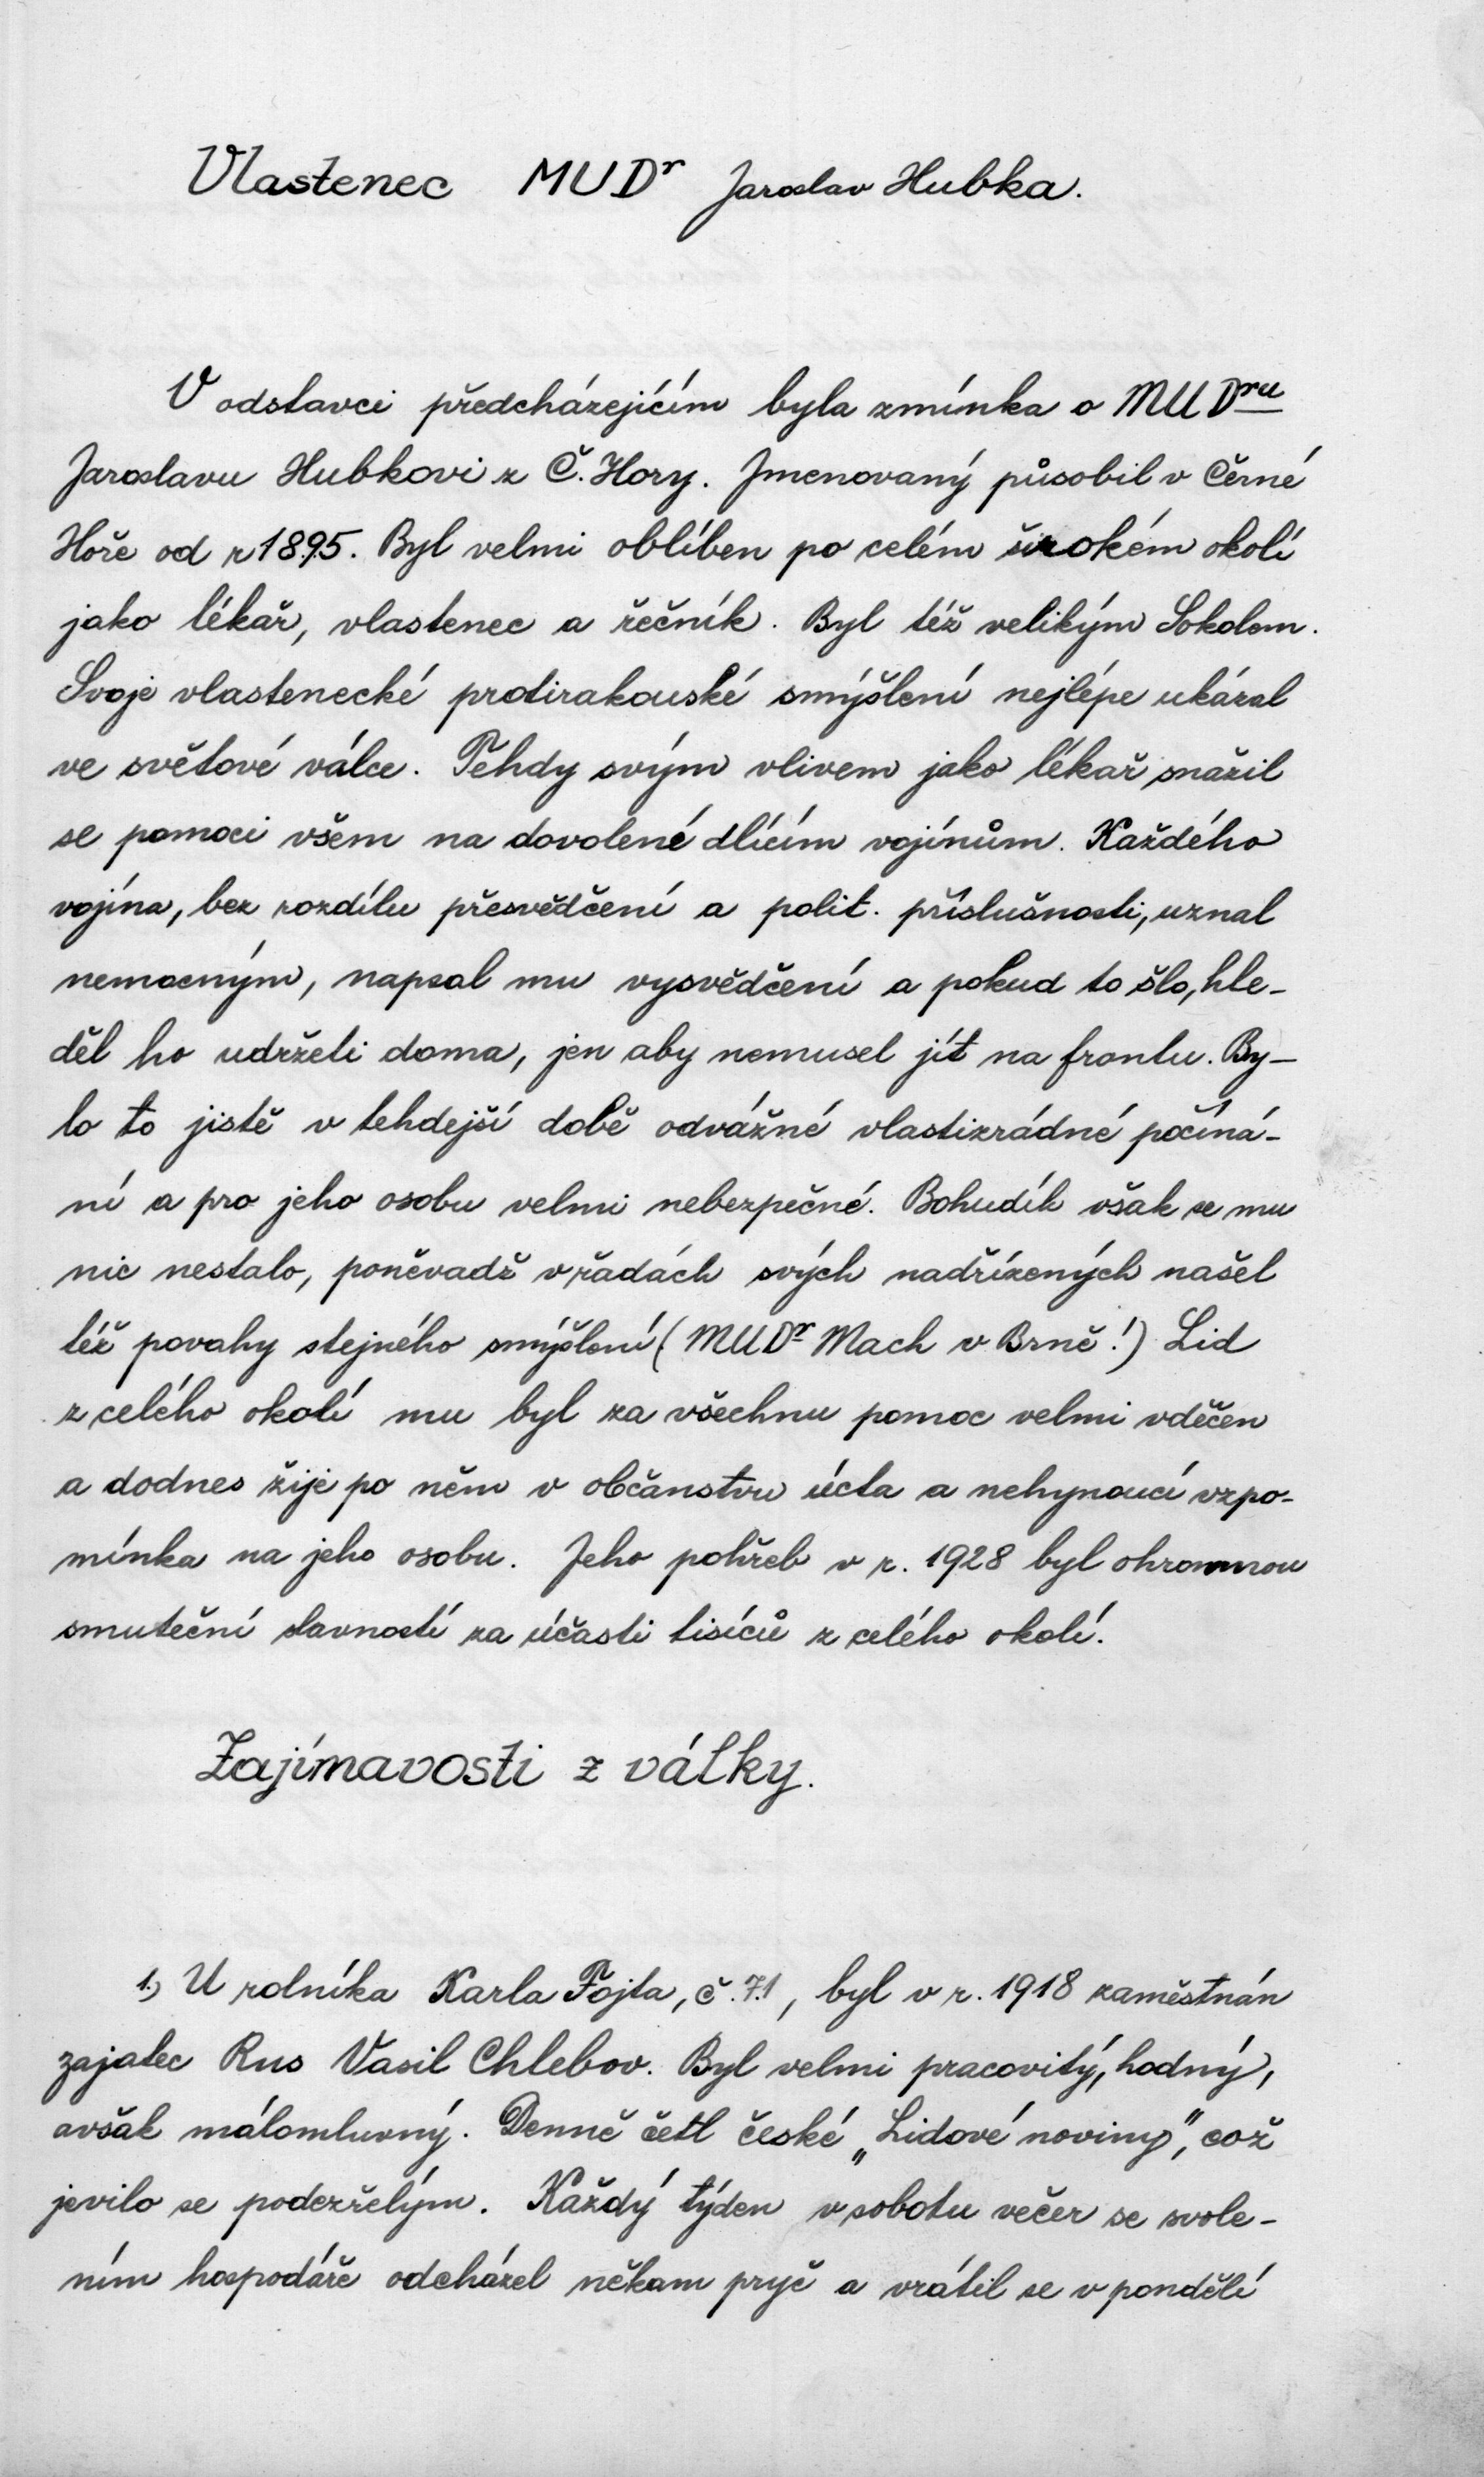 Vlastenec MUDr Jaroslav Hubka.
V odstavci předcházejícím byla zmínka o MUDru
Jaroslavu Hubkovi z Č. Hory. Jmenovaný působil v Černé
Hoře od r 1895. Byl velmi oblíben po celém širokém okolí
jako lékař, vlastenec a řečník. Byl též velikým Sokolem.
Svoje vlastenecké protirakouské smýšlení nejlépe ukázal
ve světové válce. Tehdy svým vlivem jako lékař snažil
se pomoci všem na dovolené dlícím vojínům. Každého
vojína, bez rozdílu přesvědčení a polit. příslušnosti, uznal
nemocným, napsal mu vysvědčení a pokud to šlo, hle-
děl ho udržeti doma, jen aby nemusel jít na frontu. By-
lo to jistě v tehdejší době odvážné vlastizrádné počíná-
ní a pro jeho osobu velmi nebezpečné. Bohudík však se mu
nic nestalo, poněvadž v řadách svých nadřízených našel
též povahy stejného smýšlení (MUDr Mach v Brně!) Lid
z celého okolí mu byl za všechnu pomoc velmi vděčen
a dodnes žije po něm v občanstvu úcta a nehynoucí vzpo-
mínka na jeho osobu. Jeho pohřeb v r. 1928 byl ohromnou
smuteční slavností za účasti tisíců z celého okolí.
Zajímavosti z války.
1.) U rolníka Karla Fojta, č. 71, byl v r. 1918 zaměstnán
zajatec Rus Vasil Chlebov. Byl velmi pracovitý, hodný,
avšak málomluvný. Denně četl české „Lidové noviny", což
jevilo se podezřelým. Každý týden v sobotu večer se svole-
ním hospodáře odcházel někam pryč a vrátil se v pondělí